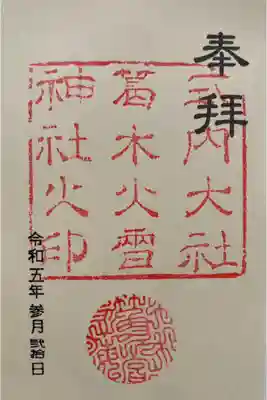 奉拝
式内大社
葛木火雷
神社之印
令和五年 參月 貳拾日